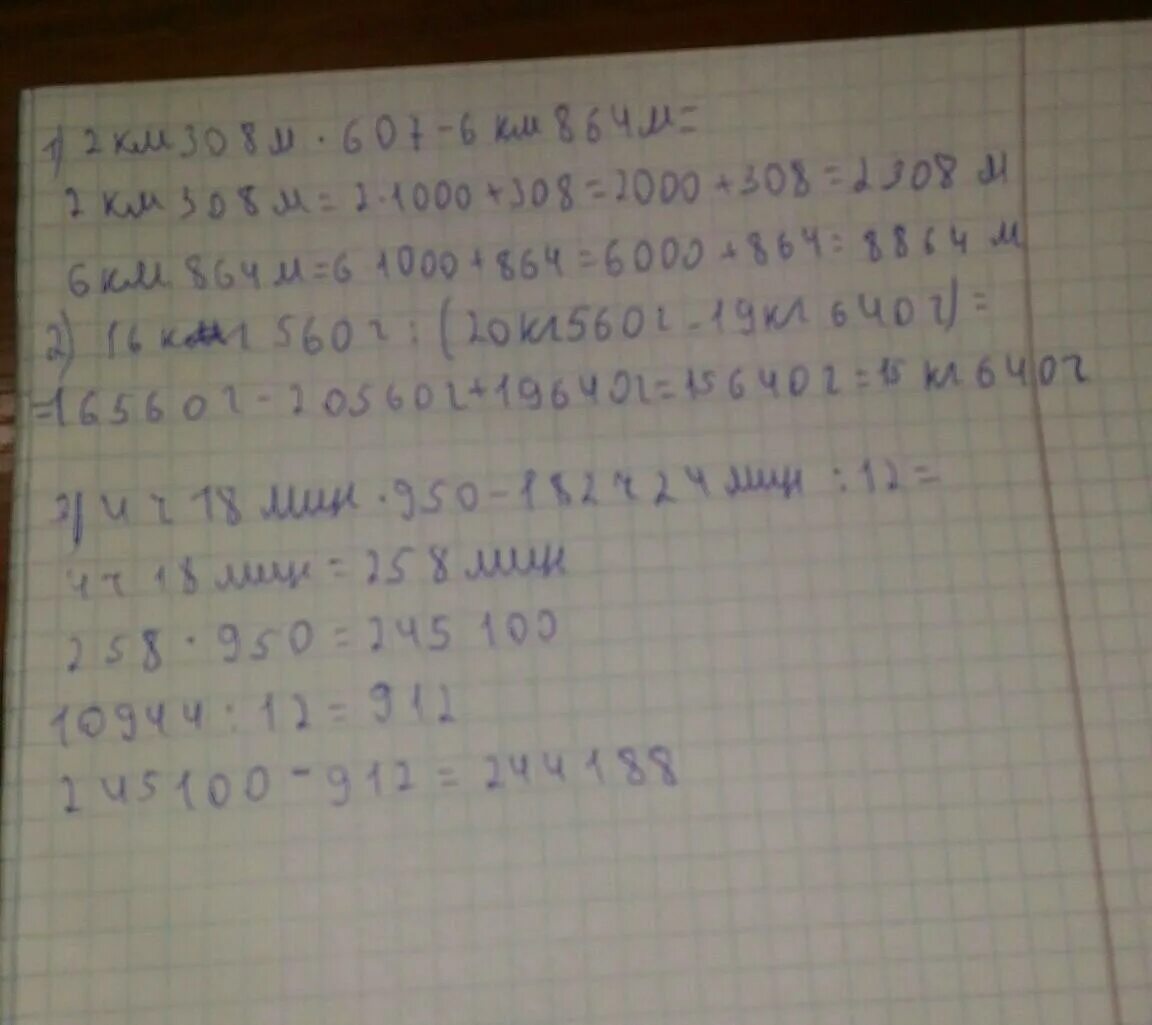 1) 2 км 308 м · 607 - 6 км 864 м =
2 км 308 м = 2·1000 + 308 = 2000 + 308 = 2308 м
6 км 864 м = 6 1000 + 864 = 6000 + 864 = 8864 м
2) 16 кг 560 г : (20 кг 560 г - 19 кг 640 г) =
= 16560 г - 20560 г + 19640 г = 15640 г = 15 кг 640 г
3) 4 ч 18 мин · 950 - 182 ч 24 мин : 12 =
4 ч 18 мин = 258 мин
258 · 950 = 245 100
10944 : 12 = 912
245100 - 912 = 244188